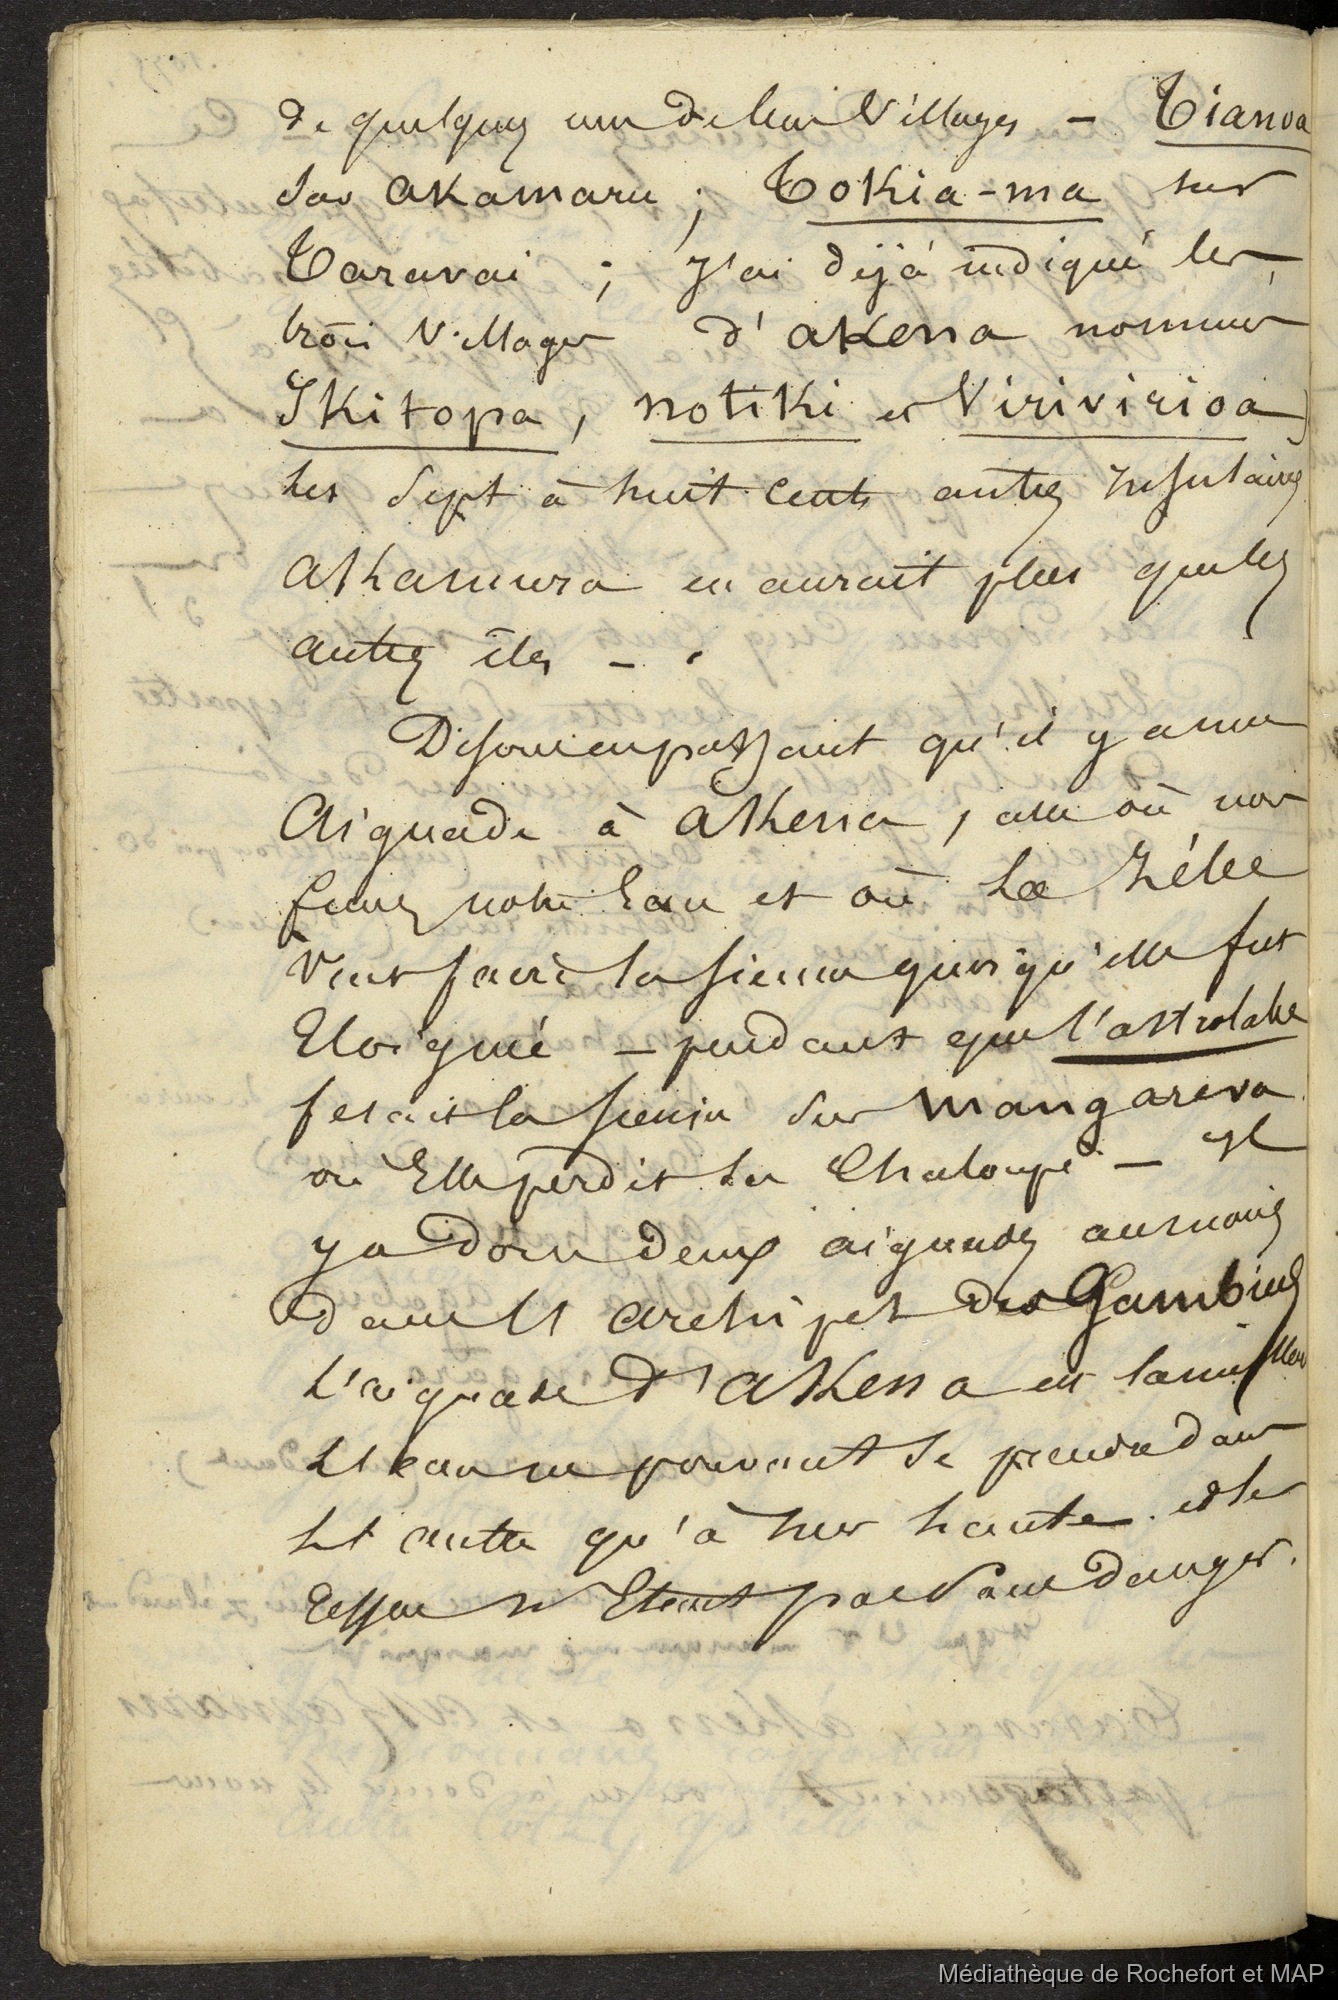 de quelques uns de leurs Villages – Tianoa
sur akamaru ; Tokia-ma sur
Taravai ; J'ai déjà indiqué les
trois Villages d'akena nommés
Ikitopa, notiki et Virivirioa)
les sept à huit cents autres insulaires
akamura en aurait plus que les
autres îles –.
Disons en passant qu'il y a une
Aiguade à akena, où nous
fimes notre Eau et où La Zélée
vint faire la sienne quoiqu'elle fut
Eloignée – pendant que l'astrolabe
fesait la sienne sur mangareva
où Elle perdit sa Chaloupe – Il
y a donc deux aiguades au moins
dans l'archipel des Gambiers
L'aiguade d'akena est la meilleure
L'eau ne pouvant se prendre dans
L'autre qu'à mer haute et le
Ressac n'Etant pas sans danger.
Médiathèque de Rochefort et MAP